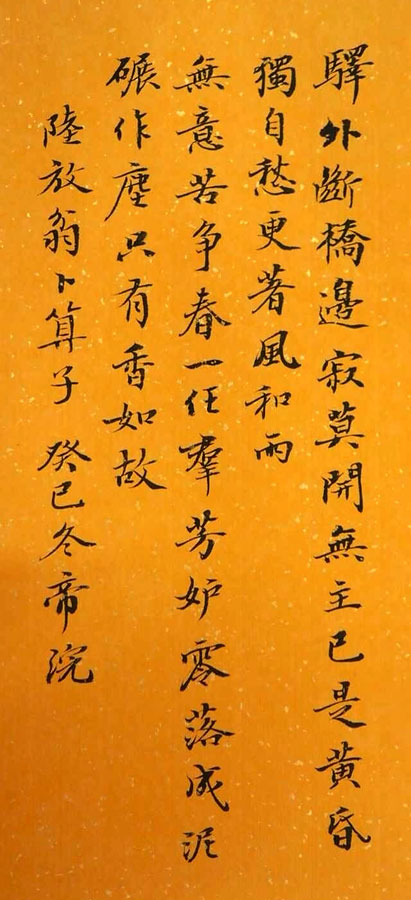 驛外斷橋邊寂莫開無主已是黄昏
獨自愁更著風和雨
無意苦争春一任羣芳妒零落成泥
碾作塵只有香如故
陸放翁卜算子 癸巳冬帝浣